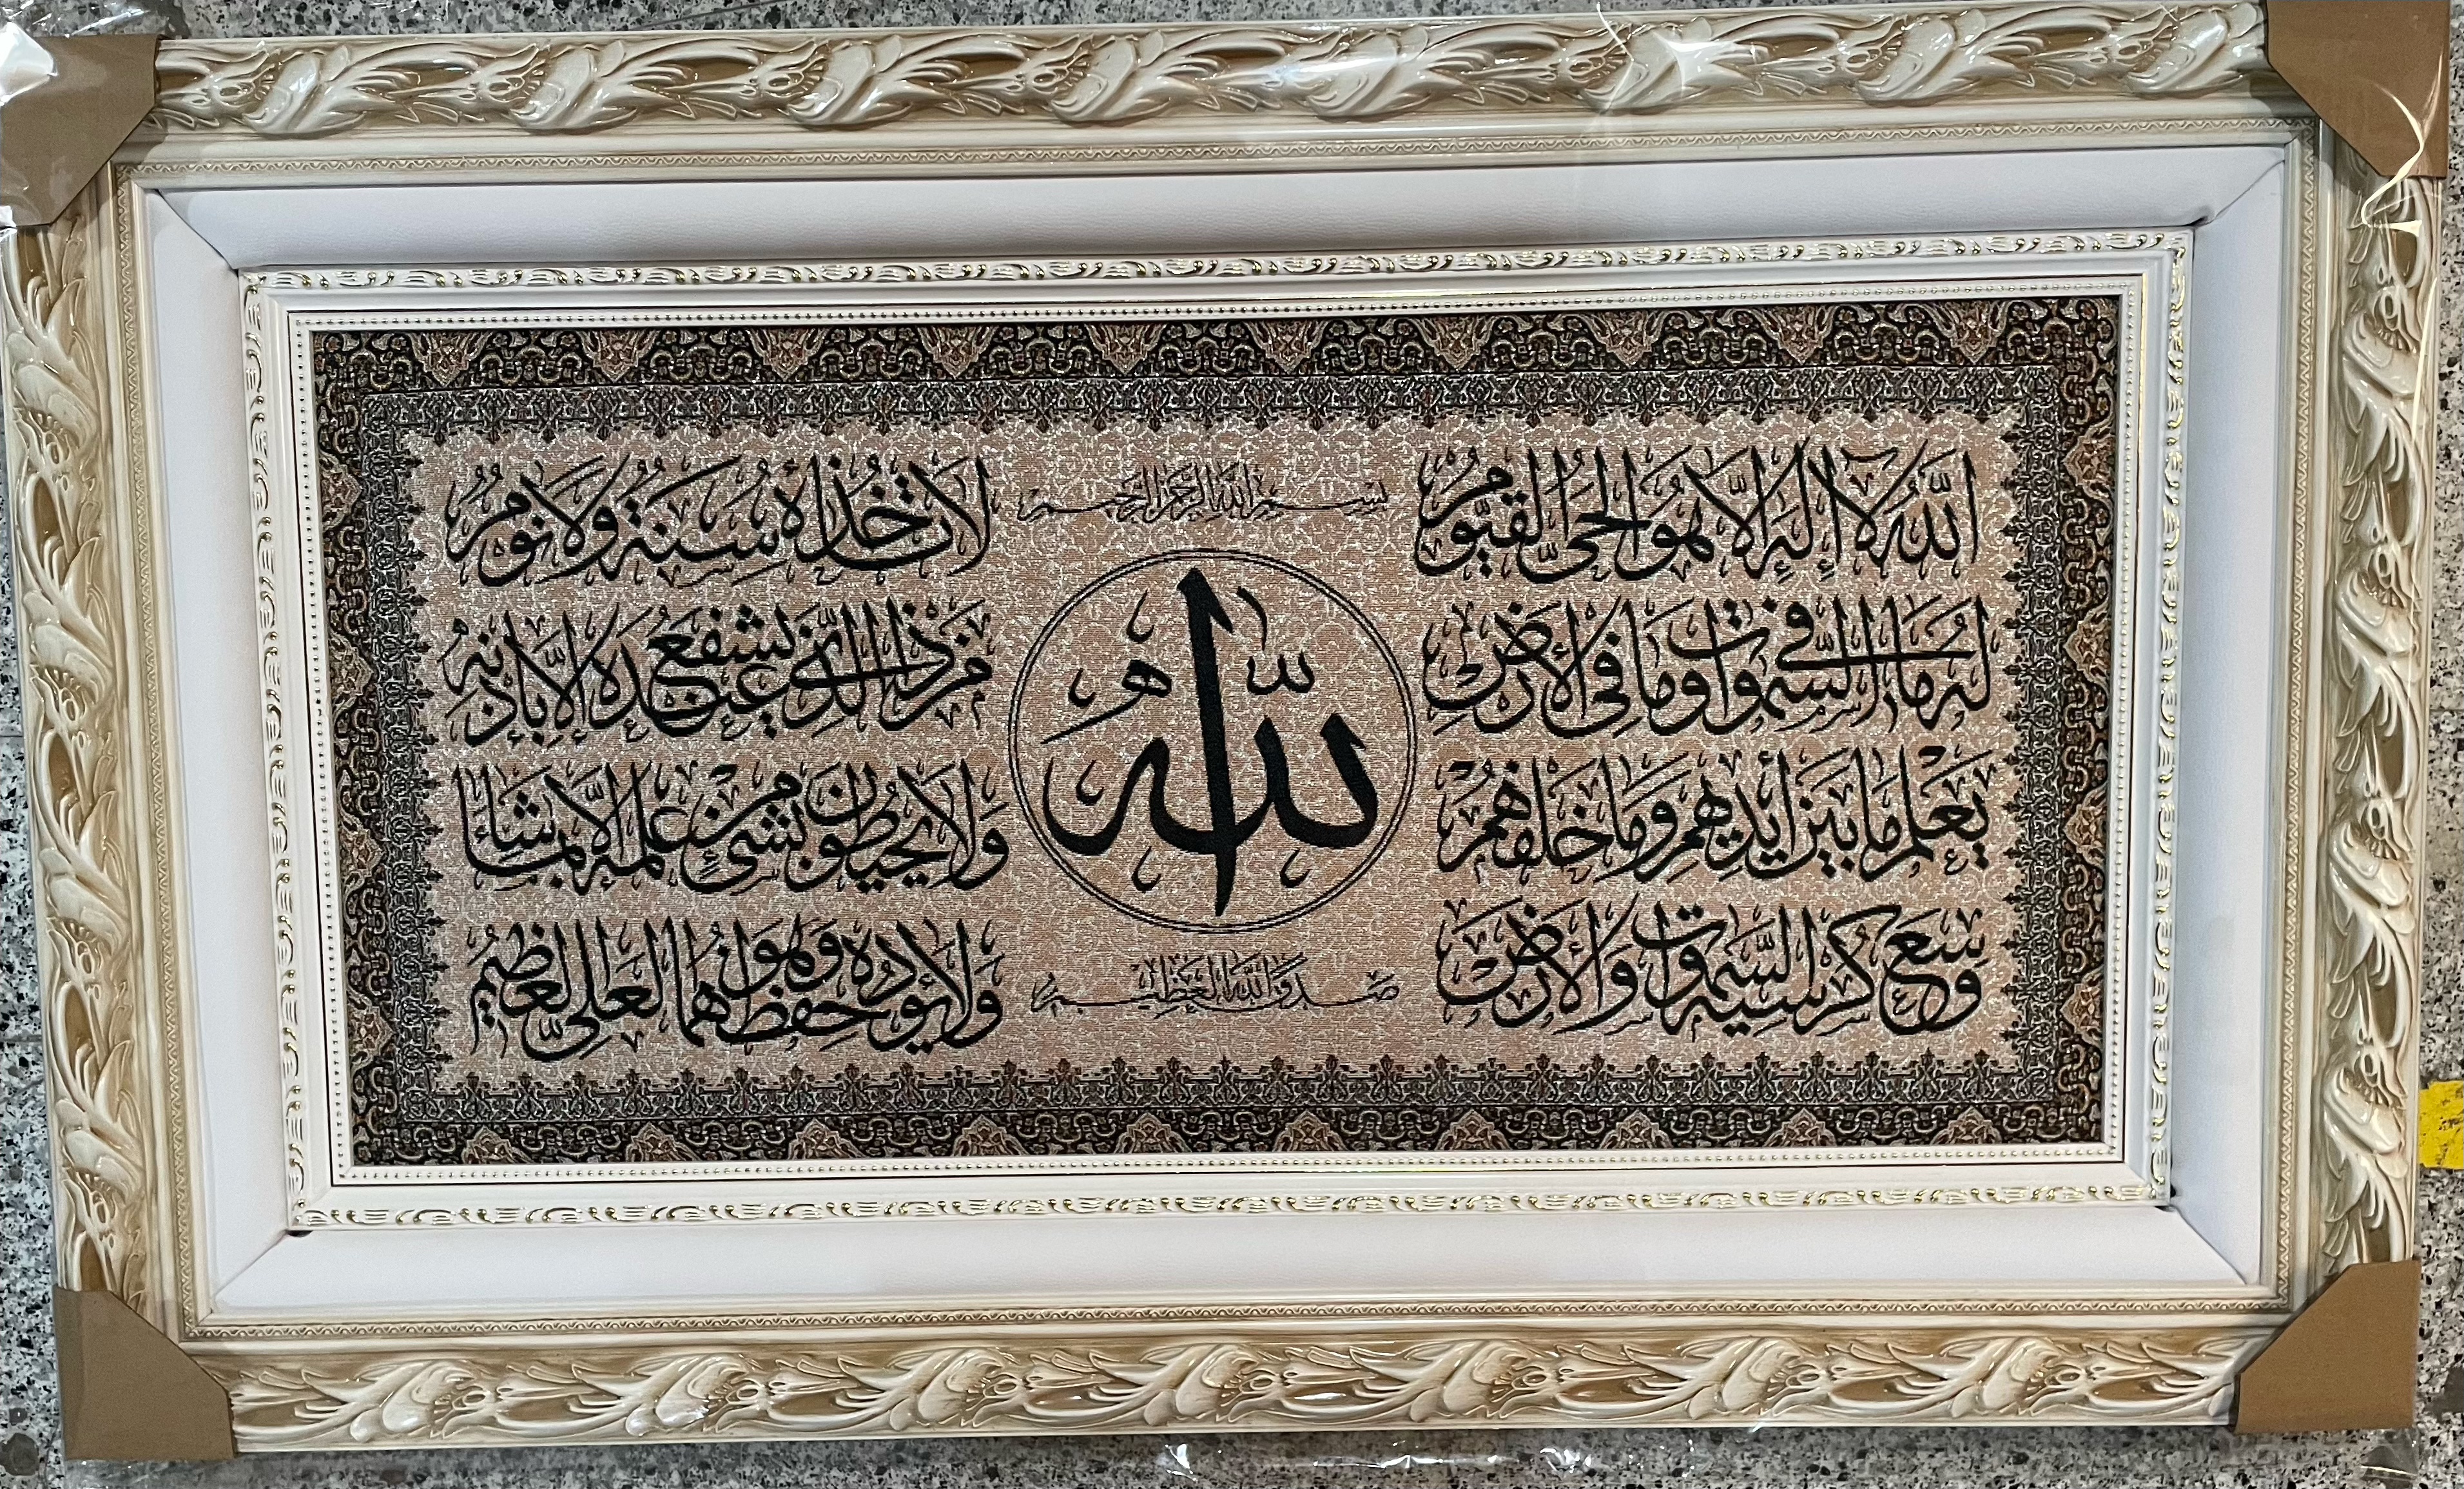 بسم الله الرحمن الرحيم
الله لا إله إلا هو الحي القيوم
لا تأخذه سنة ولا نوم
له ما في السموات وما في الأرض
من ذا الذي يشفع عنده إلا بإذنه
يعلم ما بين أيديهم وما خلفهم
ولا يحيطون بشئ من علمه إلا بما شاء
وسع كرسيه السموات والأرض
ولا يؤده حفظهما وهو العلي العظيم
الله
صدق الله العظيم